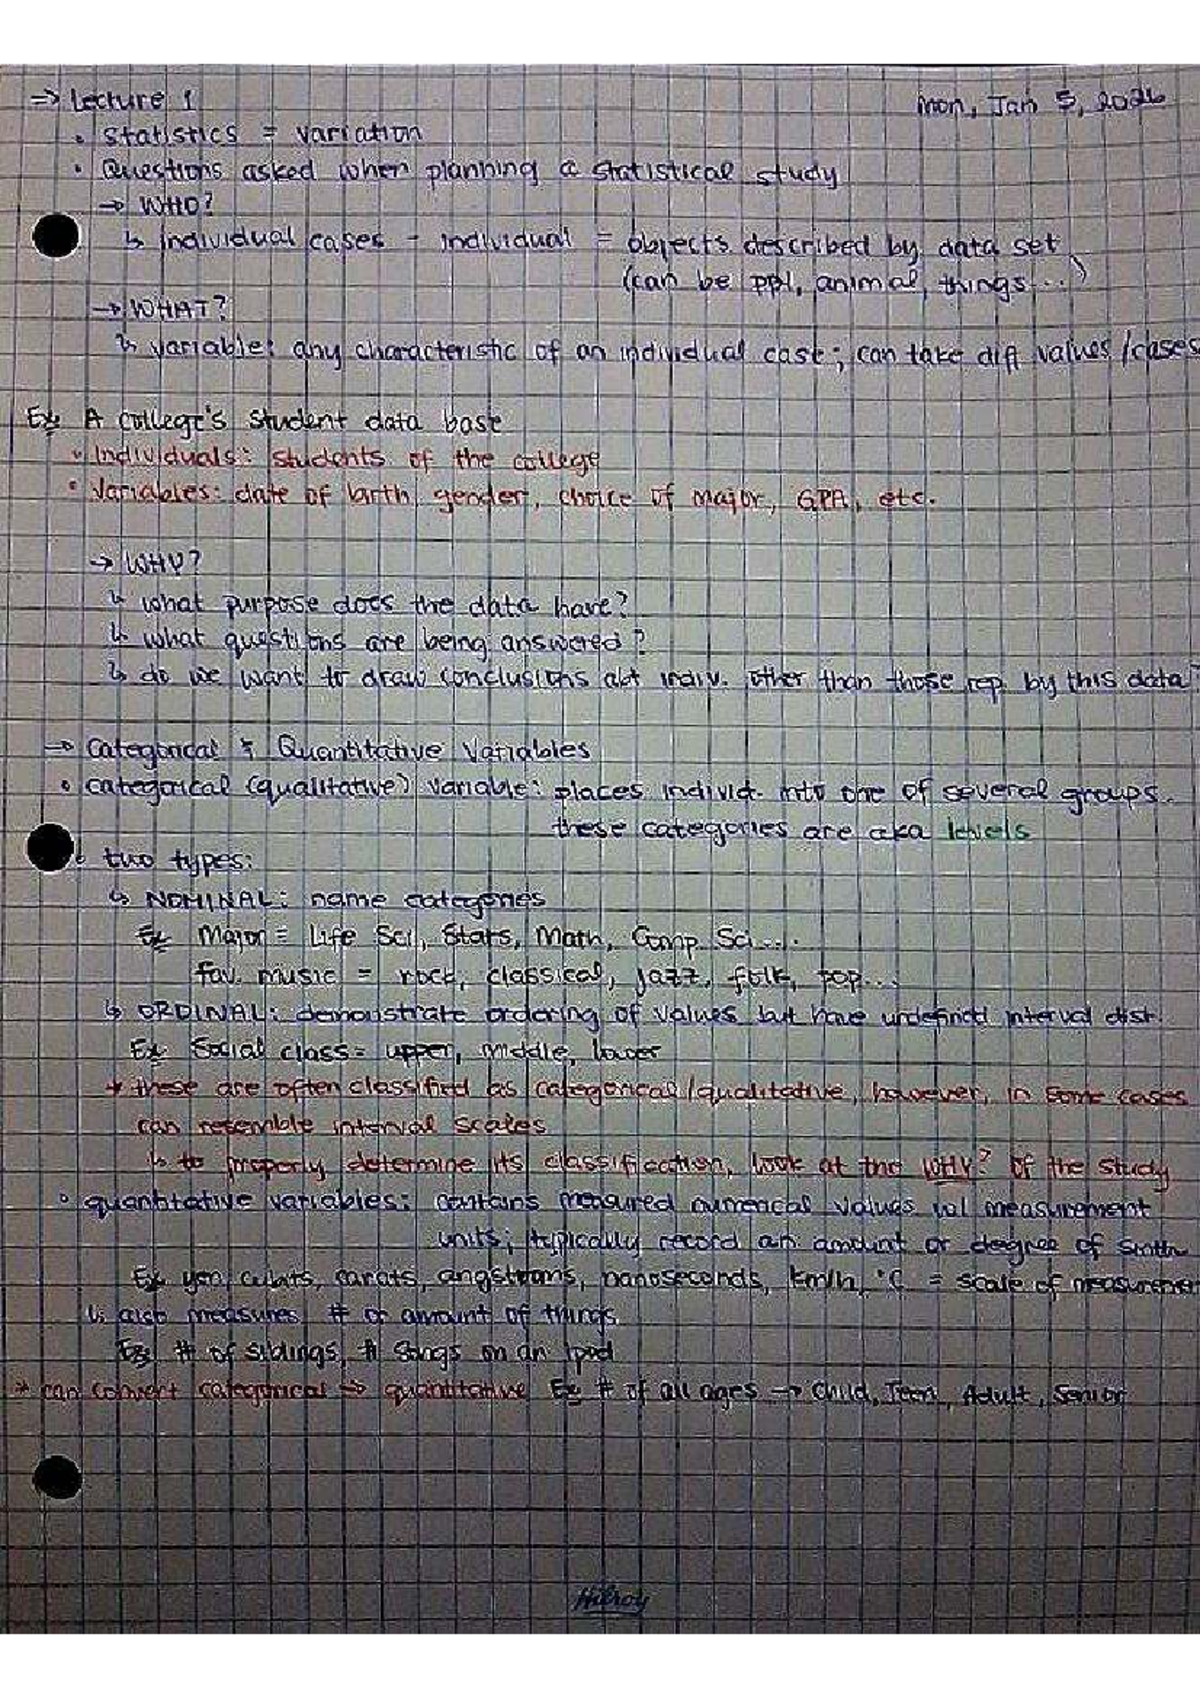 => Lecture 1 Mon, Jan 5, 2026
• Statistics = variation
• Questions asked when planning a statistical study
→ WHO?
↳ individual cases - individual = objects described by data set
(can be ppl, animal, things...)
→ WHAT?
↳ variable: any characteristic of an individual case; can take diff values/cases
Ex A college's student data base
• Individuals: students of the college
• Variables: date of birth, gender, choice of major, GPA, etc.
→ WHY?
↳ what purpose does the data have?
↳ what questions are being answered?
↳ do we want to draw conclusions abt indiv. other than those rep. by this data
→ Categorical & Quantitative Variables
• categorical (qualitative) variable: places individ. into one of several groups.
these categories are aka levels
• two types:
↳ NOMINAL: name categories
Ex Major = Life Sci, Stats, Math, Comp. Sci...
Fav. music = rock, classical, jazz, folk, pop...
↳ ORDINAL: demonstrate ordering of values but have undefined interval dist.
Ex Social class = upper, middle, lower
* these are often classified as categorical/qualitative, however, in some cases
can resemble interval scales
↳ to properly determine its classification, look at the WHY? of the study
• quantitative variables: contains measured numerical values w/ measurement
units; typically record an amount or degree of smth
Ex yen, cubits, carats, angstroms, nanoseconds, km/h, °C = scale of measureme
↳ also measures # or amount of things
Ex # of siblings, # songs on an ipod
* can convert categorical → quantitative Ex # of all ages → Child, Teen, Adult, Senior
Hilroy